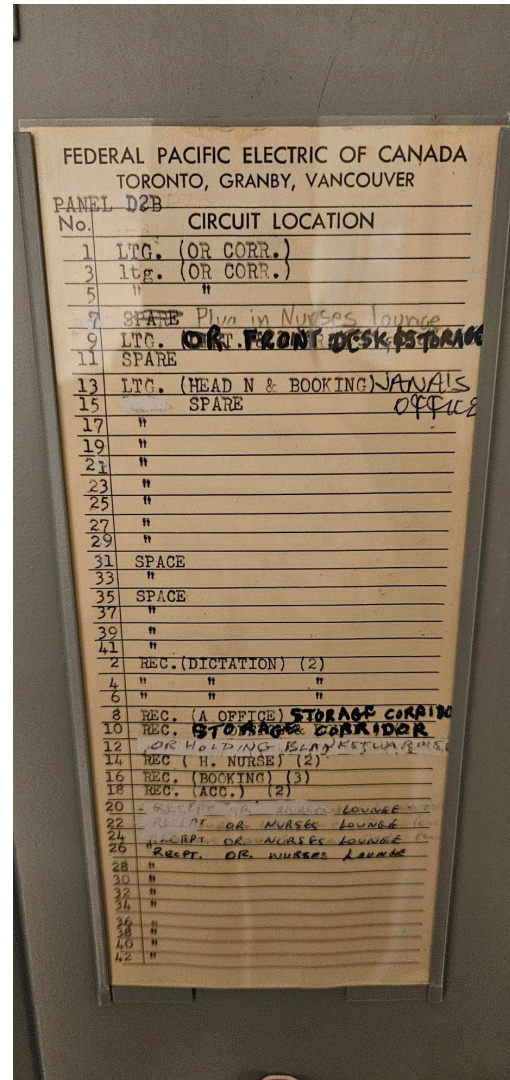 FEDERAL PACIFIC ELECTRIC OF CANADA
TORONTO, GRANBY, VANCOUVER
PANEL D2B
No. CIRCUIT LOCATION
1 LTG. (OR CORR.)
3 ltg. (OR CORR.)
5 " "
7 SPARE Plug in Nurses lounge
9 LTG. OR. FRONT DESK & STORAGE
11 SPARE
13 LTG. (HEAD N & BOOKING) JANA'S
15 SPARE OFFICE
17 "
19 "
21 "
23 "
25 "
27 "
29 "
31 SPACE
33 "
35 SPACE
37 "
39 "
41 "
2 REC.(DICTATION) (2)
4 " " "
6 " " "
8 REC. (A OFFICE) STORAGE CORRIDO
10 REC. STORAGE CORRIDOR
12 OR HOLDING BLANKET WARMER
14 REC ( H. NURSE) (2)
16 REC. (BOOKING) (3)
18 REC. (ACC.) (2)
20 RECEPT OR NURSES LOUNGE
22 RECEPT OR NURSES LOUNGE
24 RECEPT. OR. NURSES LOUNGE
26 " RECPT. OR. NURSES LOUNGE
28 "
30 "
32 "
34 "
36 "
38 "
40 "
42 "